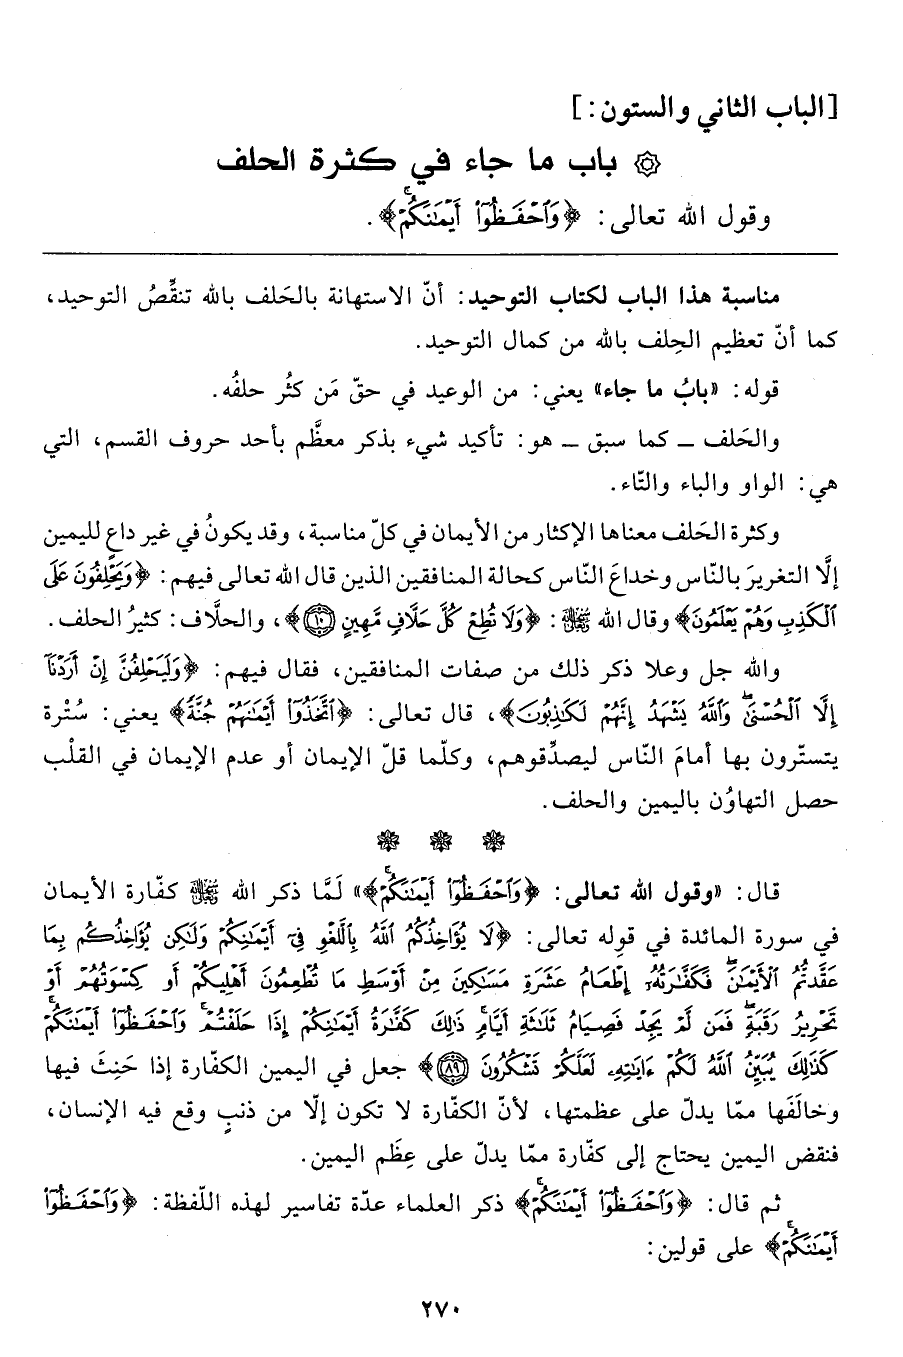 [الباب الثاني والستون:]
۞ باب ما جاء في كثرة الحلف
وقول الله تعالى: ﴿وَٱحۡفَظُوٓاْ أَيۡمَٰنَكُمۡۚ﴾.
مناسبة هذا الباب لكتاب التوحيد: أنّ الاستهانة بالحَلف بالله تنقّصُ التوحيد،
كما أنّ تعظيم الحِلف بالله من كمال التوحيد.
قوله: «بابُ ما جاء» يعني: من الوعيد في حقّ مَن كثُر حلفُه.
والحَلف ــ كما سبق ــ هو: تأكيد شيء بذكر معظَّم بأحد حروف القسم، التي
هي: الواو والباء والتّاء.
وكثرة الحَلف معناها الإكثار من الأيمان في كلّ مناسبة، وقد يكونُ في غير داعٍ لليمين
إلَّا التغريرَ بالنّاس وخداعَ النّاس كحالة المنافقين الذين قال الله تعالى فيهم: ﴿وَيَحۡلِفُونَ عَلَى
ٱلۡكَذِبِ وَهُمۡ يَعۡلَمُونَ﴾ وقال الله ﷻ: ﴿وَلَا تُطِعۡ كُلَّ حَلَّافٖ مَّهِينٍ ١٠﴾، والحلاف: كثيرُ الحلف.
والله جل وعلا ذكر ذلك من صفات المنافقين، فقال فيهم: ﴿وَلَيَحۡلِفُنَّ إِنۡ أَرَدۡنَآ
إِلَّا ٱلۡحُسۡنَىٰۖ وَٱللَّهُ يَشۡهَدُ إِنَّهُمۡ لَكَٰذِبُونَ﴾، قال تعالى: ﴿ٱتَّخَذُوٓاْ أَيۡمَٰنَهُمۡ جُنَّةٗ﴾ يعني: سُتْرة
يتستّرون بها أمامَ النّاس ليصدِّقوهم، وكلّما قلّ الإيمان أو عدم الإيمان في القلْب
حصل التهاوُن باليمين والحلف.
قال: «وقول الله تعالى: ﴿وَٱحۡفَظُوٓاْ أَيۡمَٰنَكُمۡۚ﴾» لَمَّا ذكر الله ﷻ كفّارة الأيمان
في سورة المائدة في قوله تعالى: ﴿لَا يُؤَاخِذُكُمُ ٱللَّهُ بِٱللَّغۡوِ فِيٓ أَيۡمَٰنِكُمۡ وَلَٰكِن يُؤَاخِذُكُم بِمَا
عَقَّدتُّمُ ٱلۡأَيۡمَٰنَۖ فَكَفَّٰرَتُهُۥٓ إِطۡعَامُ عَشَرَةِ مَسَٰكِينَ مِنۡ أَوۡسَطِ مَا تُطۡعِمُونَ أَهۡلِيكُمۡ أَوۡ كِسۡوَتُهُمۡ أَوۡ
تَحۡرِيرُ رَقَبَةٖۖ فَمَن لَّمۡ يَجِدۡ فَصِيَامُ ثَلَٰثَةِ أَيَّامٖۚ ذَٰلِكَ كَفَّٰرَةُ أَيۡمَٰنِكُمۡ إِذَا حَلَفۡتُمۡۚ وَٱحۡفَظُوٓاْ أَيۡمَٰنَكُمۡۚ
كَذَٰلِكَ يُبَيِّنُ ٱللَّهُ لَكُمۡ ءَايَٰتِهِۦ لَعَلَّكُمۡ تَشۡكُرُونَ ٨٩﴾ جعل في اليمين الكفارة إذا حَنِثَ فيها
وخالَفَها ممّا يدلّ على عظمتها، لأنّ الكفّارة لا تكون إلّا من ذنبٍ وقع فيه الإنسان،
فنقض اليمين يحتاج إلى كفّارة ممّا يدلّ على عِظَم اليمين.
ثم قال: ﴿وَٱحۡفَظُوٓاْ أَيۡمَٰنَكُمۡۚ﴾ ذكر العلماء عدّة تفاسير لهذه اللّفظة: ﴿وَٱحۡفَظُوٓاْ
أَيۡمَٰنَكُمۡۚ﴾ على قولين:
٢٧٠